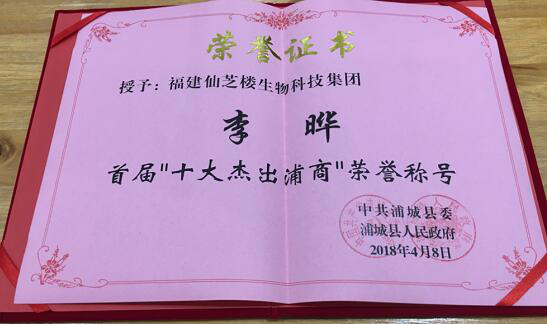 荣誉证书
授予：福建仙芝楼生物科技集团
李 晔
首届"十大杰出浦商"荣誉称号
中共浦城县委
浦城县人民政府
2018年4月8日